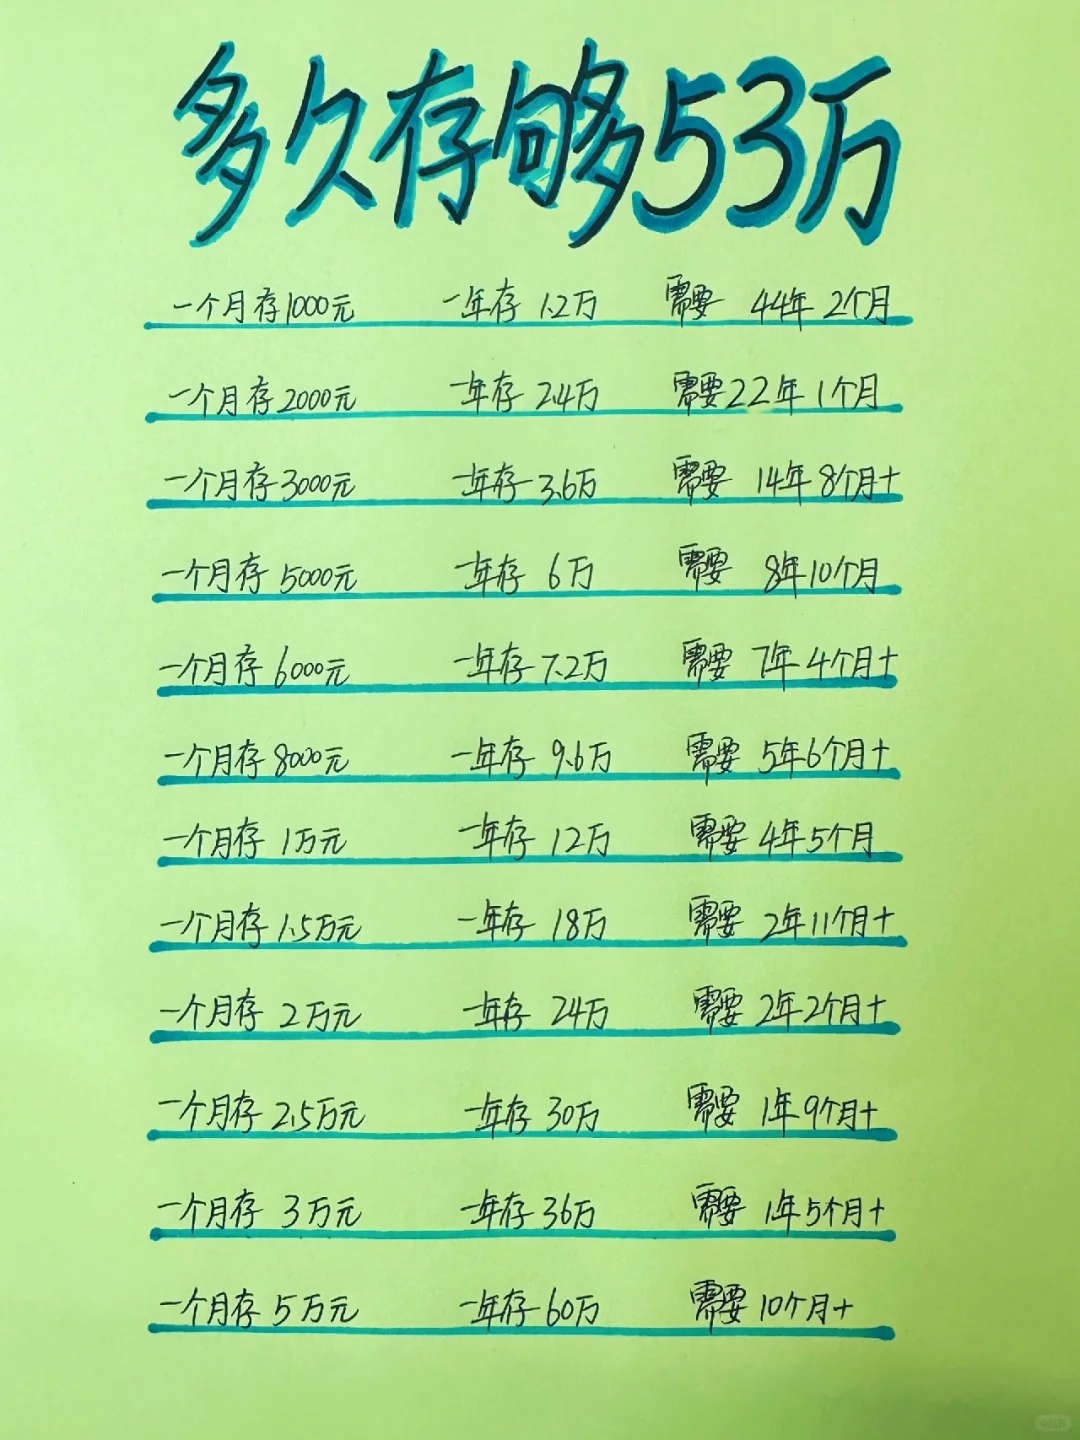 多久存够53万
一个月存1000元 一年存 1.2万 需要 44年 2个月
一个月存2000元 一年存 2.4万 需要22年 1个月
一个月存3000元 一年存 3.6万 需要 14年 8个月+
一个月存 5000元 一年存 6万 需要 8年10个月
一个月存 6000元 一年存 7.2万 需要 7年 4个月+
一个月存 8000元 一年存 9.6万 需要 5年6个月+
一个月存 1万元 一年存 12万 需要 4年5个月
一个月存 1.5万元 一年存 18万 需要 2年11个月+
一个月存 2万元 一年存 24万 需要 2年2个月+
一个月存 2.5万元 一年存 30万 需要 1年9个月+
一个月存 3万元 一年存 36万 需要 1年5个月+
一个月存 5万元 一年存 60万 需要 10个月+